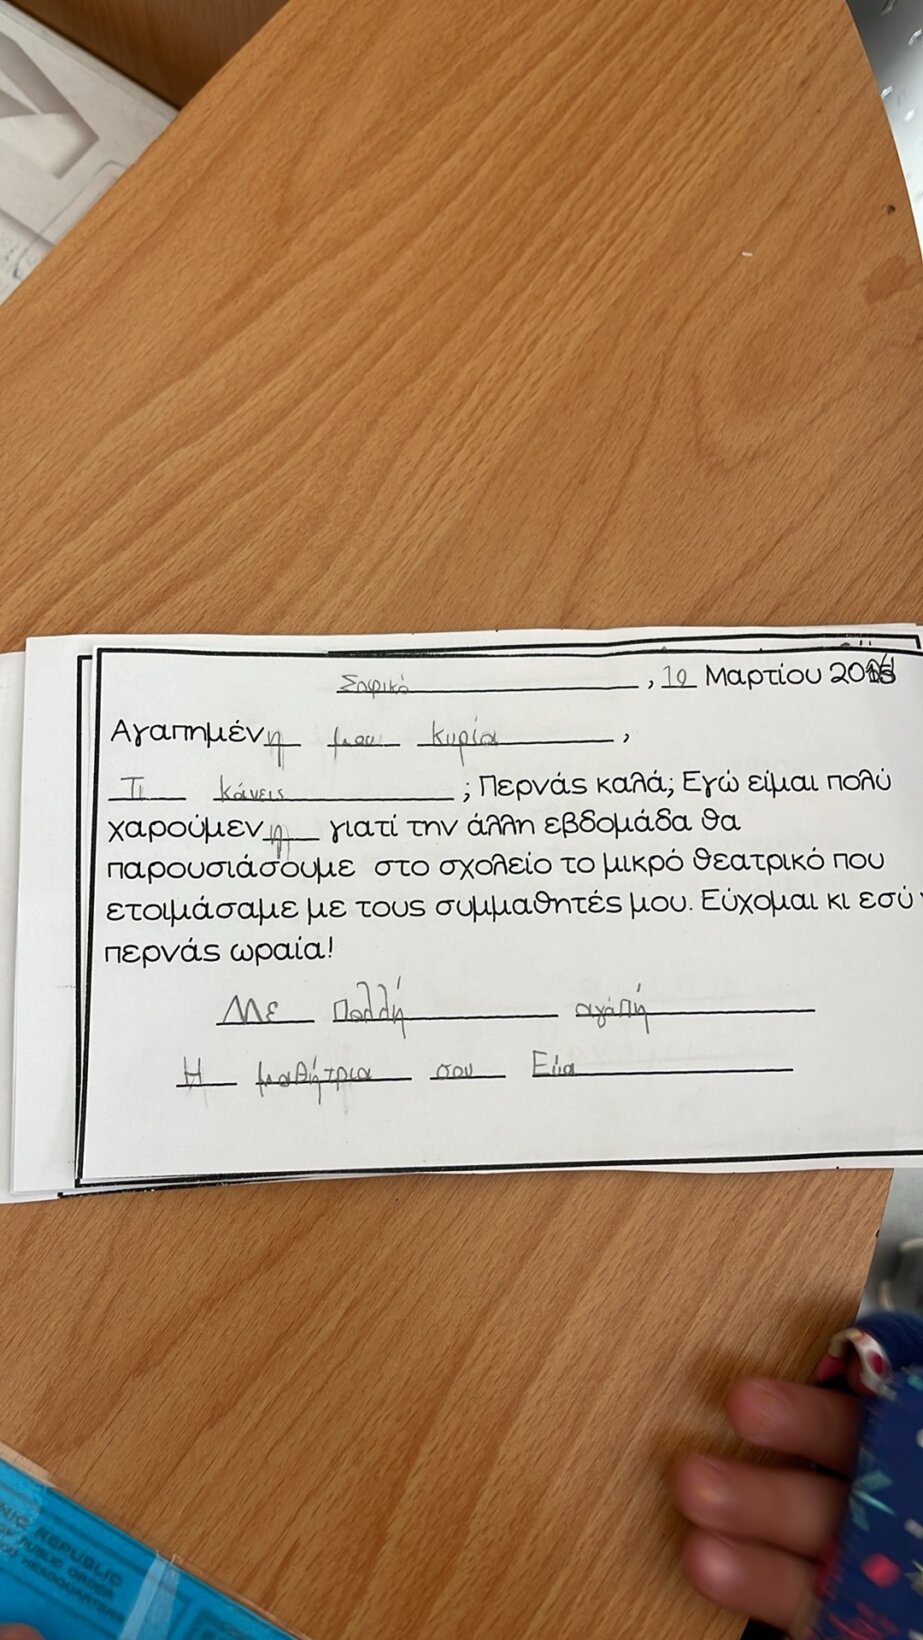 Σοφικό, 10 Μαρτίου 20
Αγαπημένη μου κυρία,
Τι κάνεις; Περνάς καλά; Εγώ είμαι πολύ
χαρούμενη γιατί την άλλη εβδομάδα θα
παρουσιάσουμε στο σχολείο το μικρό θεατρικό που
ετοιμάσαμε με τους συμμαθητές μου. Εύχομαι κι εσύ
περνάς ωραία!
Με Πολλή αγάπή
Η μαθήτρια σου Εύα
REPUBLIC
PUBLIC ORDER
HEADQUARTERS